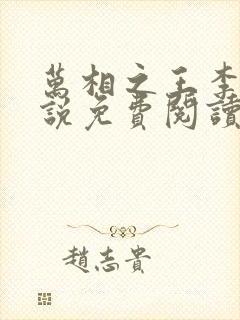 萬相之王李
說免費閱讀
趙志貴